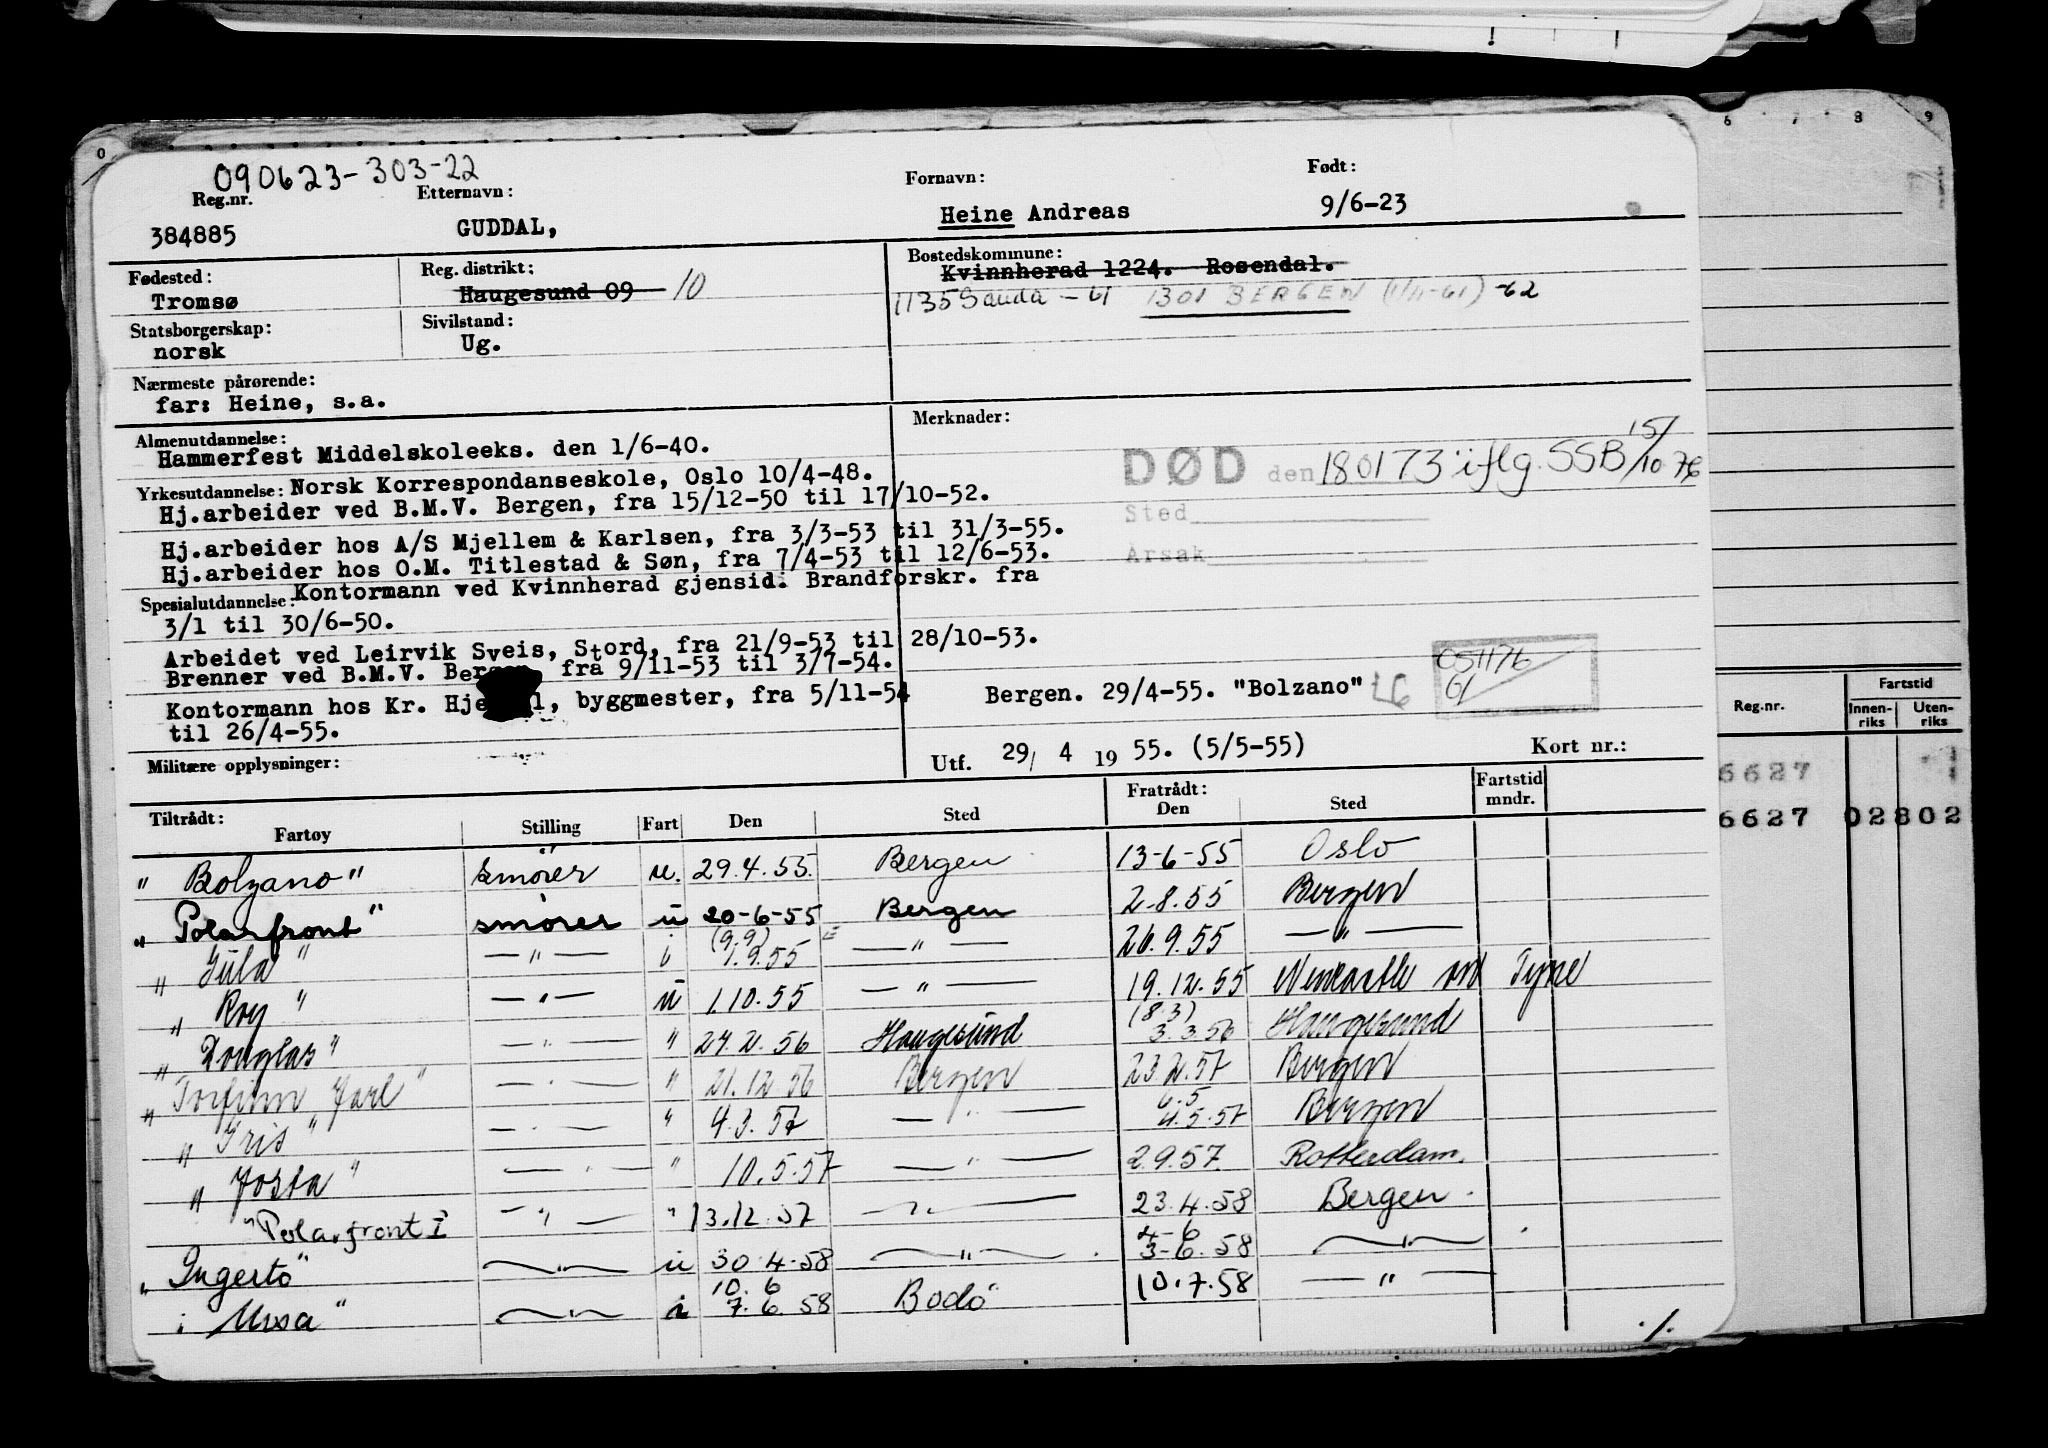 0 6 7 8 9
090623-303-22
Reg.nr. Etternavn: Fornavn: Født:
384885 GUDDAL, Heine Andreas 9/6-23
Fødested: Reg. distrikt: Bostedskommune:
Tromsø Haugesund 09 10 Kvinnherad 1224. Rosendal.
1135 Sauda - 61 1301 BERGEN (1/11-61) -62
Statsborgerskap: Sivilstand:
norsk Ug.
Nærmeste pårørende:
far: Heine, s.a.
Almenutdannelse: Merknader:
Hammerfest Middelskoleeks. den 1/6-40.
DØD den 180173 iflg. SSB 15/10-76
Yrkesutdannelse: Norsk Korrespondanseskole, Oslo 10/4-48.
Hj.arbeider ved B.M.V. Bergen, fra 15/12-50 til 17/10-52.
Sted
Hj.arbeider hos A/S Mjellem & Karlsen, fra 3/3-53 til 31/3-55.
Årsak
Hj.arbeider hos O.M. Titlestad & Søn, fra 7/4-53 til 12/6-53.
Spesialutdannelse: Kontormann ved Kvinnherad gjensid. Brandforskr. fra
3/1 til 30/6-50.
Arbeidet ved Leirvik Sveis, Stord, fra 21/9-53 til 28/10-53.
Brenner ved B.M.V. Bergen, fra 9/11-53 til 3/7-54.
051176
61
Kontormann hos Kr. Hje l, byggmester, fra 5/11-54 Bergen. 29/4-55. "Bolzano"
til 26/4-55.
Militære opplysninger: Utf. 29/ 4 19 55. (5/5-55) Kort nr.:
Reg.nr. Fartstid
Innenriks Utenriks
6627
6627 02802
Tiltrådt: Fratrådt: Fartstid mndr.
Fartøy Stilling Fart Den Sted Den Sted
" Bolzano " smører u. 29.4.55. Bergen 13-6-55 Oslo
" Polarfront " smører u 20-6-55 Bergen 2.8.55 Bergen
" Gula " — " — i (9.9) 1.9.55 — " — 26.9.55 — " —
" Roy " — " — u 1.10.55 — " — 19.12.55 Newcastle on Tyne
" Douglas " — " — " 27.2.56 Haugesund (8.3) 3.3.56 Haugesund
" Torfinn Jarl " — " — " 21.12.56 Bergen 23.2.57 Bergen
" Iris " — " — " 4.3.57 — " — 6.5 4.5.57 Bergen
" Josta " — " — " 10.5.57 — " — 2.9.57. Rotterdam.
" Polarfront I — " — " 13.12.57 — " — 23.4.58 Bergen.
" Ingertö " — " — u 30.4.58 — " — 4-6 3-6.58 — " —
" Ursa " — " — i 10.6 7.6.58 Bodö 10.7.58 — " —
./.